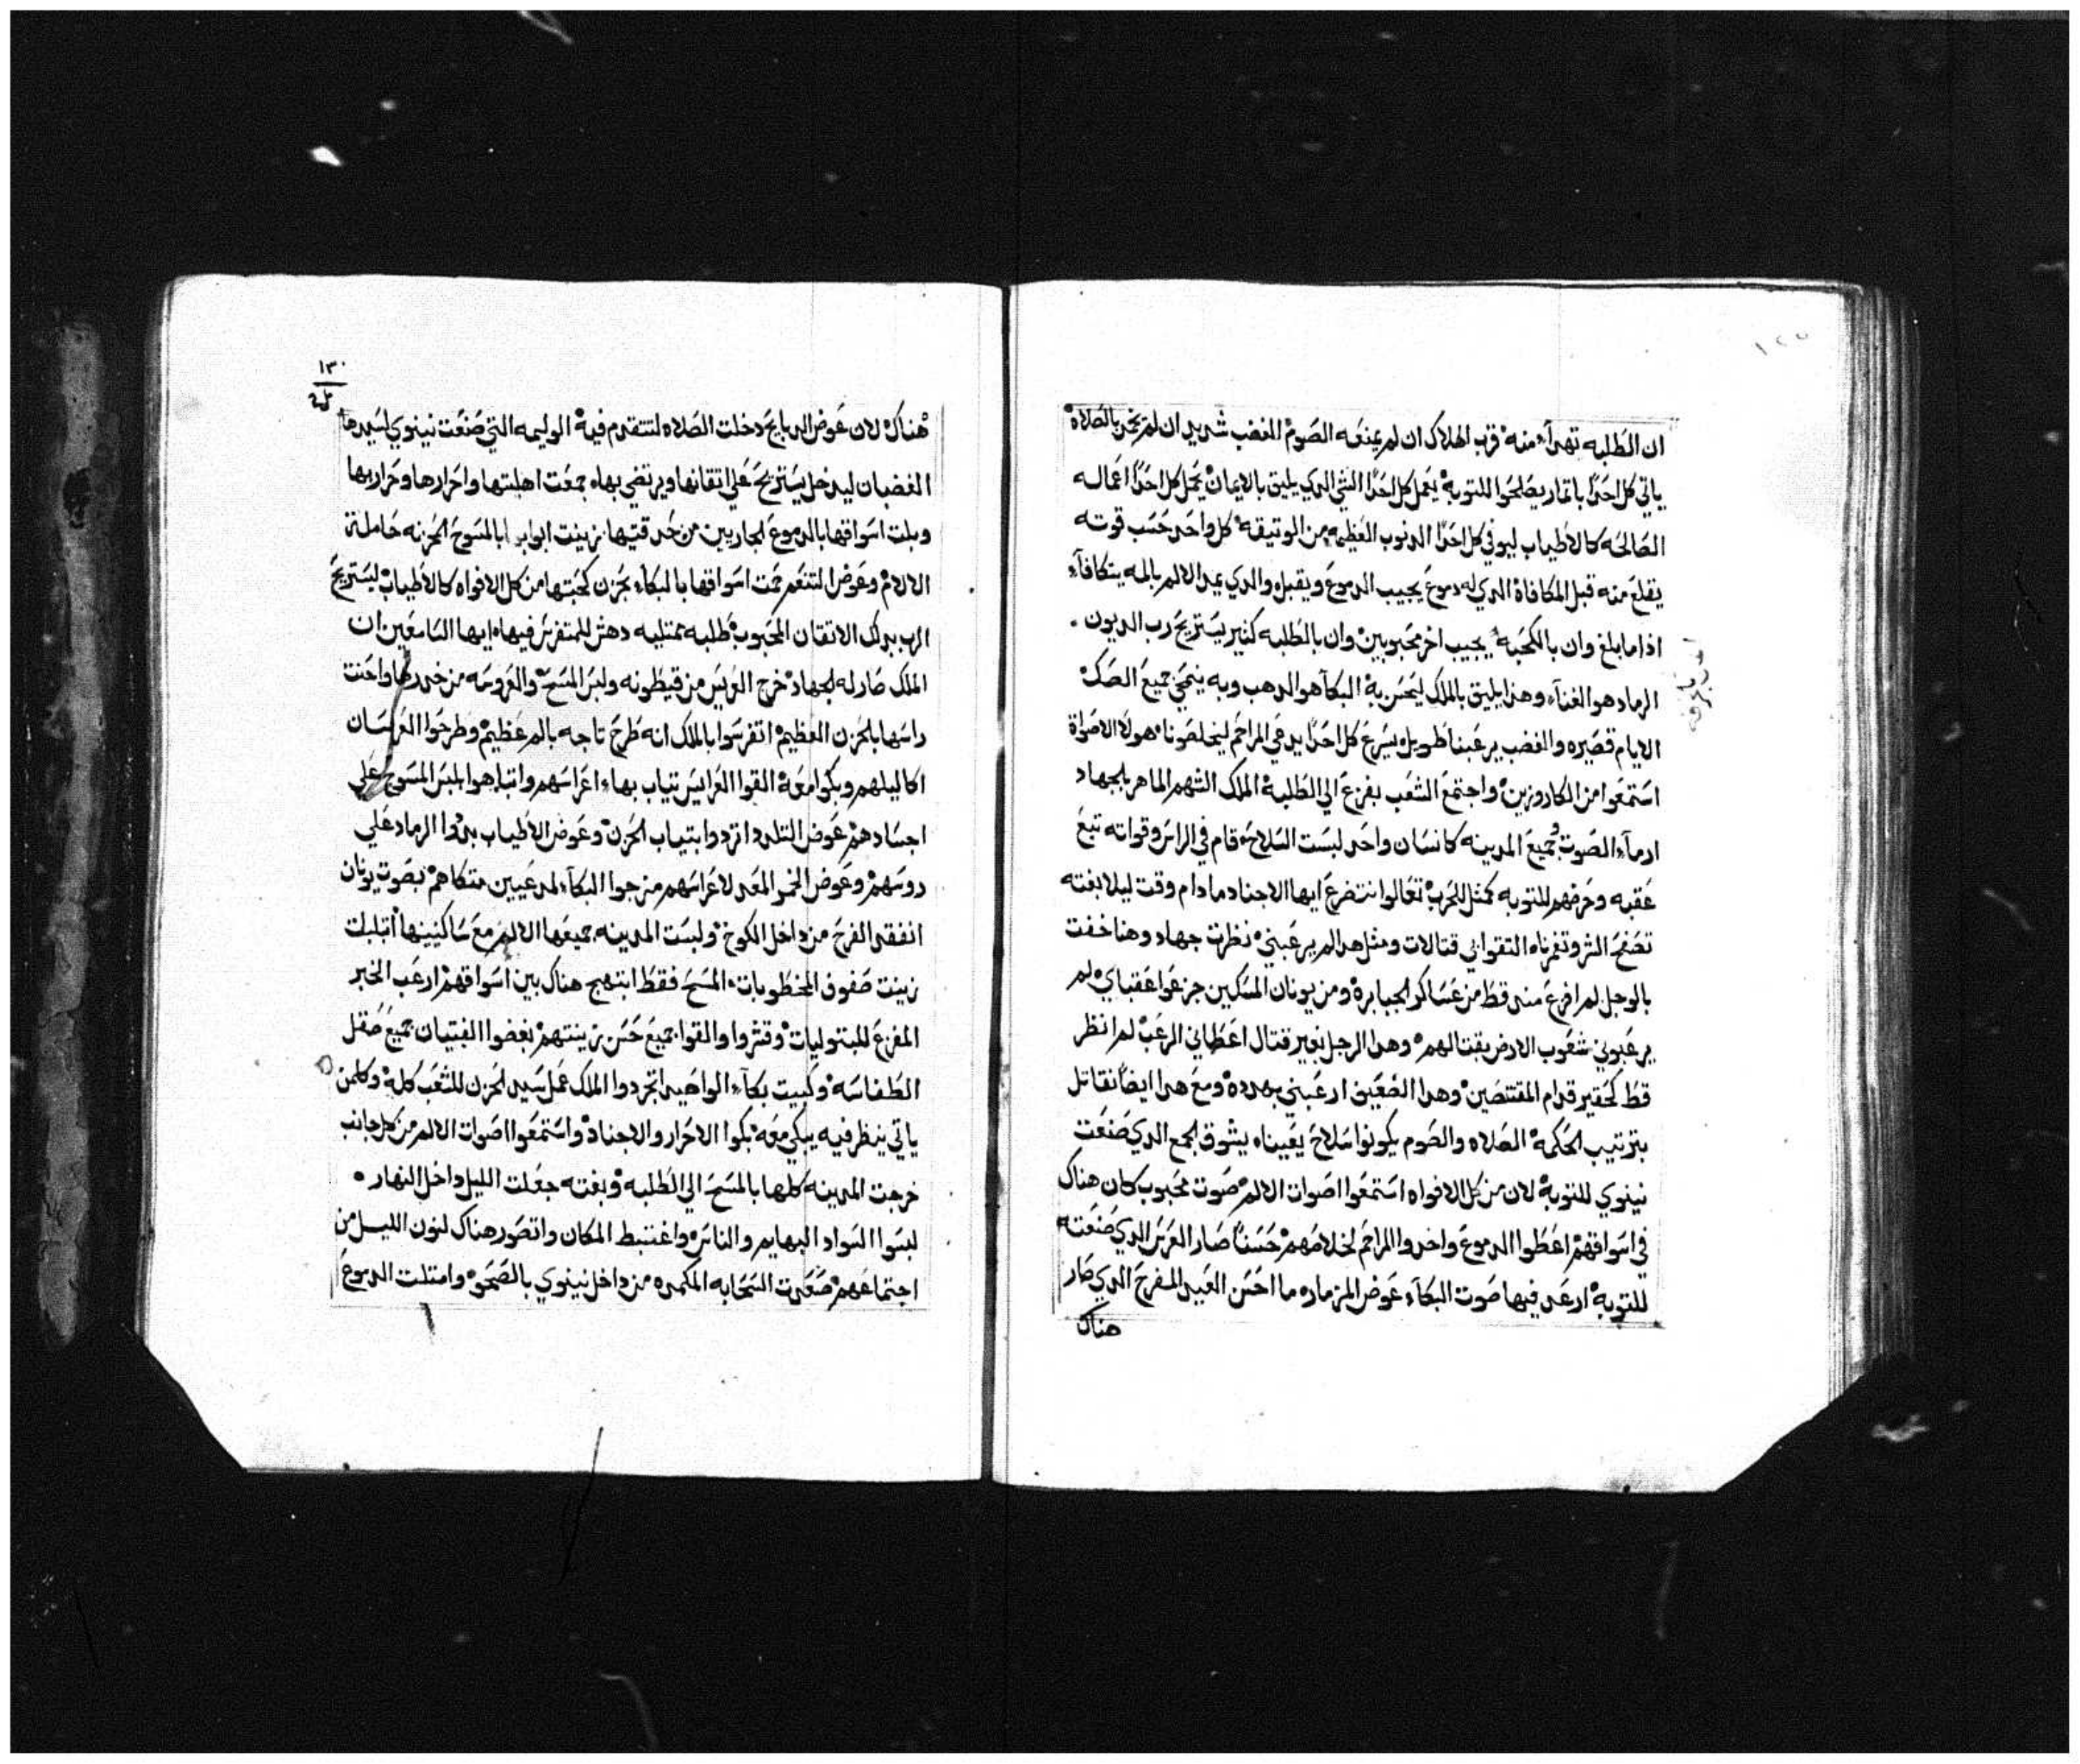 ان الطلبه تهدآء منه قرب الهلاك ان لم يمنعه الصوم الغضب شديد ان لم نخر بالصلاة
ياتي كل احدًا باتمار يصلحوا للتوبة يعمل كل احدًا الشي الدي يليق بالايمان يحمل كل احدًا اعماله
الصالحه كالاطياب ليوفي كل احدًا الدنوب العظيمه من الوتيقه كل واحد حسب قوته
يقلع منه قبل المكافاة الدي له دموع يجيب الدموع ويقبل والدي عديم الالم بالمه يتكافآء
اذا ما بلغ وان بالمحبه يجيب اخر محبوبين وان بالطلبه كثير يستريح رب الديون
الرماد هو الغنآء وهذا يليق بالملك ليحسن به البكآ هو الدهب وبه ينمحي جميع الصك
الايام قصيره والغضب يرعبنا طويل يسرع كل احدًا يدعي المراحم ليخلصونا هولا الاصواة
استمعوا من الكاروزين واجتمع الشعب بفزع الي الطلبة الملك الشهم الماهر بالجهاد
ارمآء الصوت وجميع المدينه كانسان واحد لبست السلاح قام في الراس وقواته تبع
عقبه وحرضهم للتوبه كمثل للحرب تعالوا نتضرع ايها الاجناد مادام وقت ليلا بغته
بالوجل لم افزع مند قط من عساكر الجبابرة ومن يونان المسكين جزعوا عقباي لم
يرعبوني شعوب الارض بقتالهم وهدا الرجل بغير قتال اعطاني الرعب لم انظر
قط كحقير قدام المقتنصين وهدا الضعيف ارعبني بهدده ومع هدا ايضًا نقاتل
بترتيب الحكمة الصلاه والصوم يكونوا سلاح يعيناه يشوق الجمع الدي صنعت
نينوي للتوبة لان من كل الافواه استمعوا اصوات الالم صوت محبوب كان هناك
في اسواقهم اعطوا الدموع واخدوا المراحم لخلاصهم حسنًا صار العرس الدي صنعته
للتوبة ارعد فيها صوت البكآء عوض المزماره ما احسن العيد المفرح الدي صار
هناك
١٣٠
هناك لان عوض الدبايح دخلت الصلاه لتتقدم فيه الوليمه التي صنعت نينوي لسيدها
الغضبان ليدخل يستريح علي اتقانها ويرتضي بها جمعت اهلتها واحرارها وحرارها
وبلت اسواقها بالدموع الجاريين من حدقتيها زينت ابوابها بالمسوح الحزنه حاملة
الالام وعوض التنعم حمت اسواقها بالبكآء بحزن من كل الافواه كالاطياب ليستريح
الرب بدلك الاتقان المحبوب طلبه ممتليه دهش للمتفرس فيها ايها السامعين ان
الملك صار له الجهاد خرج العريس من قيطونه ولبس المسح والعروسه من خدرها واحنت
راسها بالحزن العظيم اتفرسوا بالملك انه طرح تاجه بالم عظيم وطرحوا العرسان
اكاليلهم وبكوا معه القوا العرايس تياب بهاء اعراسهم واتباهوا بلبس المسوح علي
اجسادهم عوض التلدد اتردوا بتياب الحزن وعوض الاطياب بدوا الرماد علي
روسهم وعوض الخمر المعد لاعراسهم مزجوا البكآء لمدعيين متكاهم بصوت يونان
انفقد الفرح من داخل الكوخ ولبست المدينه جميعها الالم مع ساكنينها اتبلبلت
زينت صفوف المخطوبات المسح فقط ابتهج هناك بين اسواقهم ارعب الخبر
المفزع للبتوليات وقشروا والقوا جميع حسن زينتهم بغضوا الفتيان جميع صقل
الطفاسه وكبيت بكآء الواحيد اتجردوا الملك عمل سيد الحزن للشعب كله وكلمن
ياتي ينظر فيه يبكي معه بكوا الاحرار والاجناد واستمعوا اصوات الالم من كل جانب
خرجت المدينه كلها بالمسح الي الطلبه وبغته جعلت الليل داخل النهار
لبسوا السواد البهايم والناس واغتبط المكان واتصور هناك لنون الليل من
اجتماعهم صعدت السحابه المكمده من داخل نينوي بالصحو وامتلت الدموع